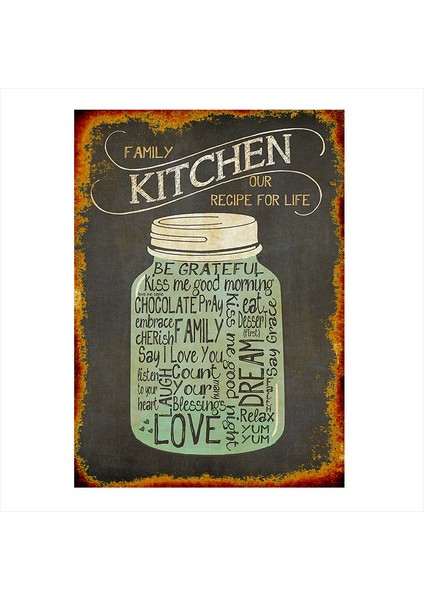 FAMILY
KITCHEN
OUR
RECIPE FOR LIFE
BE GRATEFUL
Kiss me good morning
CHOCOLATE PrAy
embrace
cHERish FAMILY
Say I Love You
listen
to your
heart
LAUGH
Count
Your
many
Blessings
LOVE
Kiss me good night
eat
Dessert
(first)
DREAM
Say Grace
Relax
YUM YUM
YUM YUM